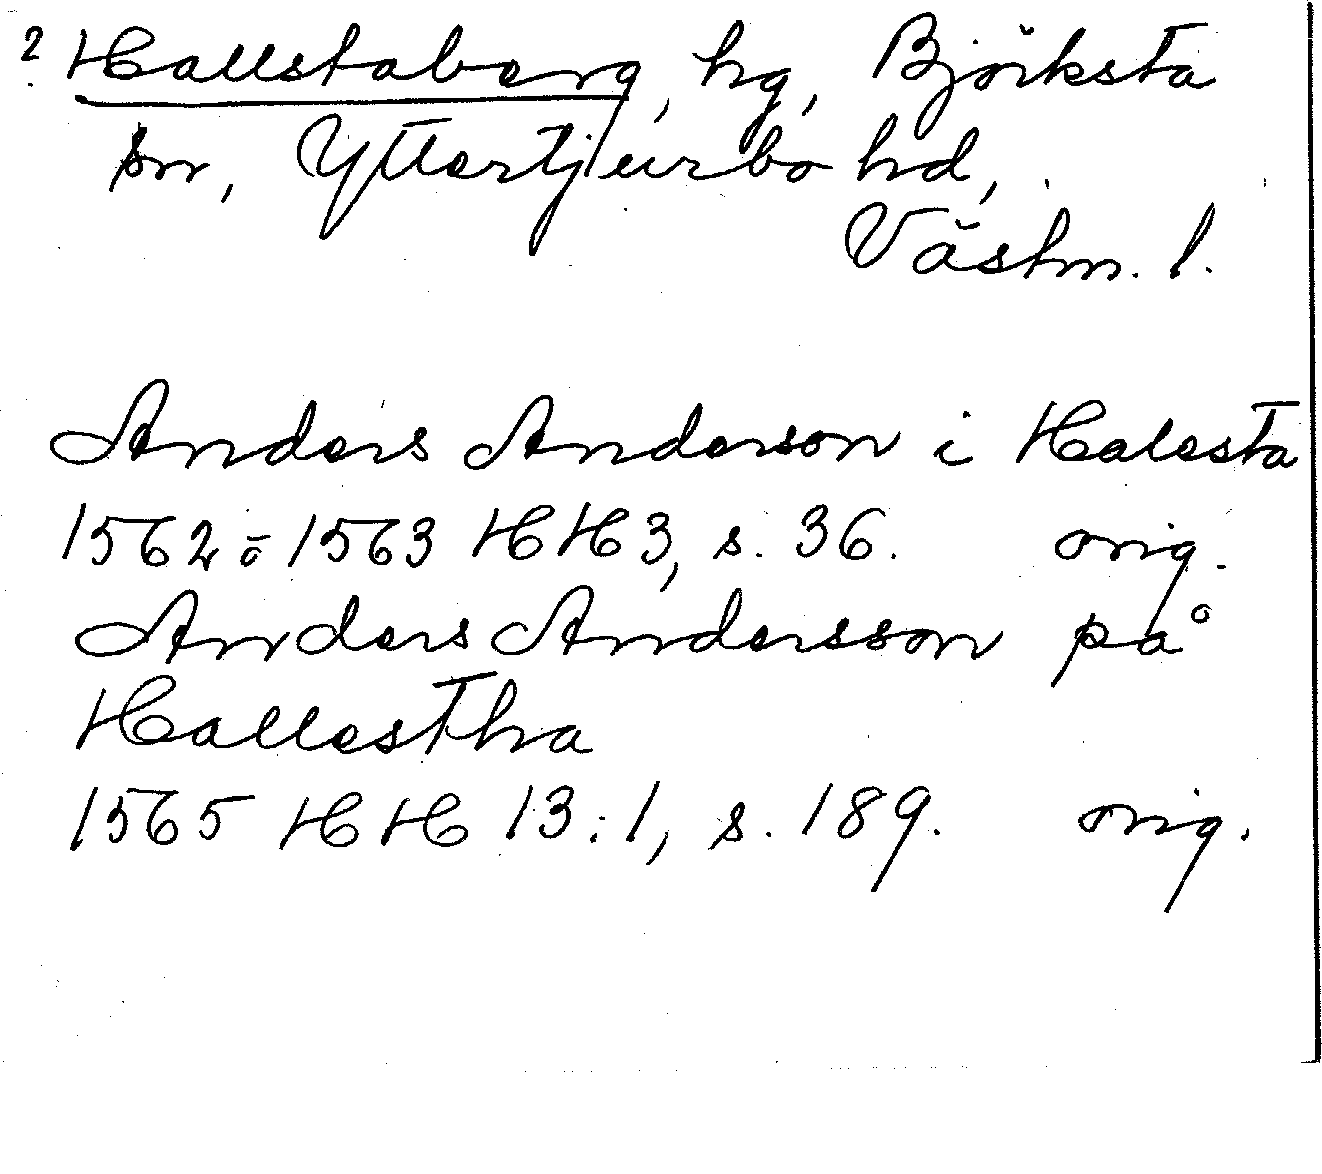 ? Hallstaberg, hg, Björksta
sn, Yttertjurbo hd,
Västm. l.
Anders Anderson i Halesta
1562 o 1563 HH 3, s. 36. orig.
Anders Andersson på
Hallestha
1565 HH 13:1, s. 189. orig.